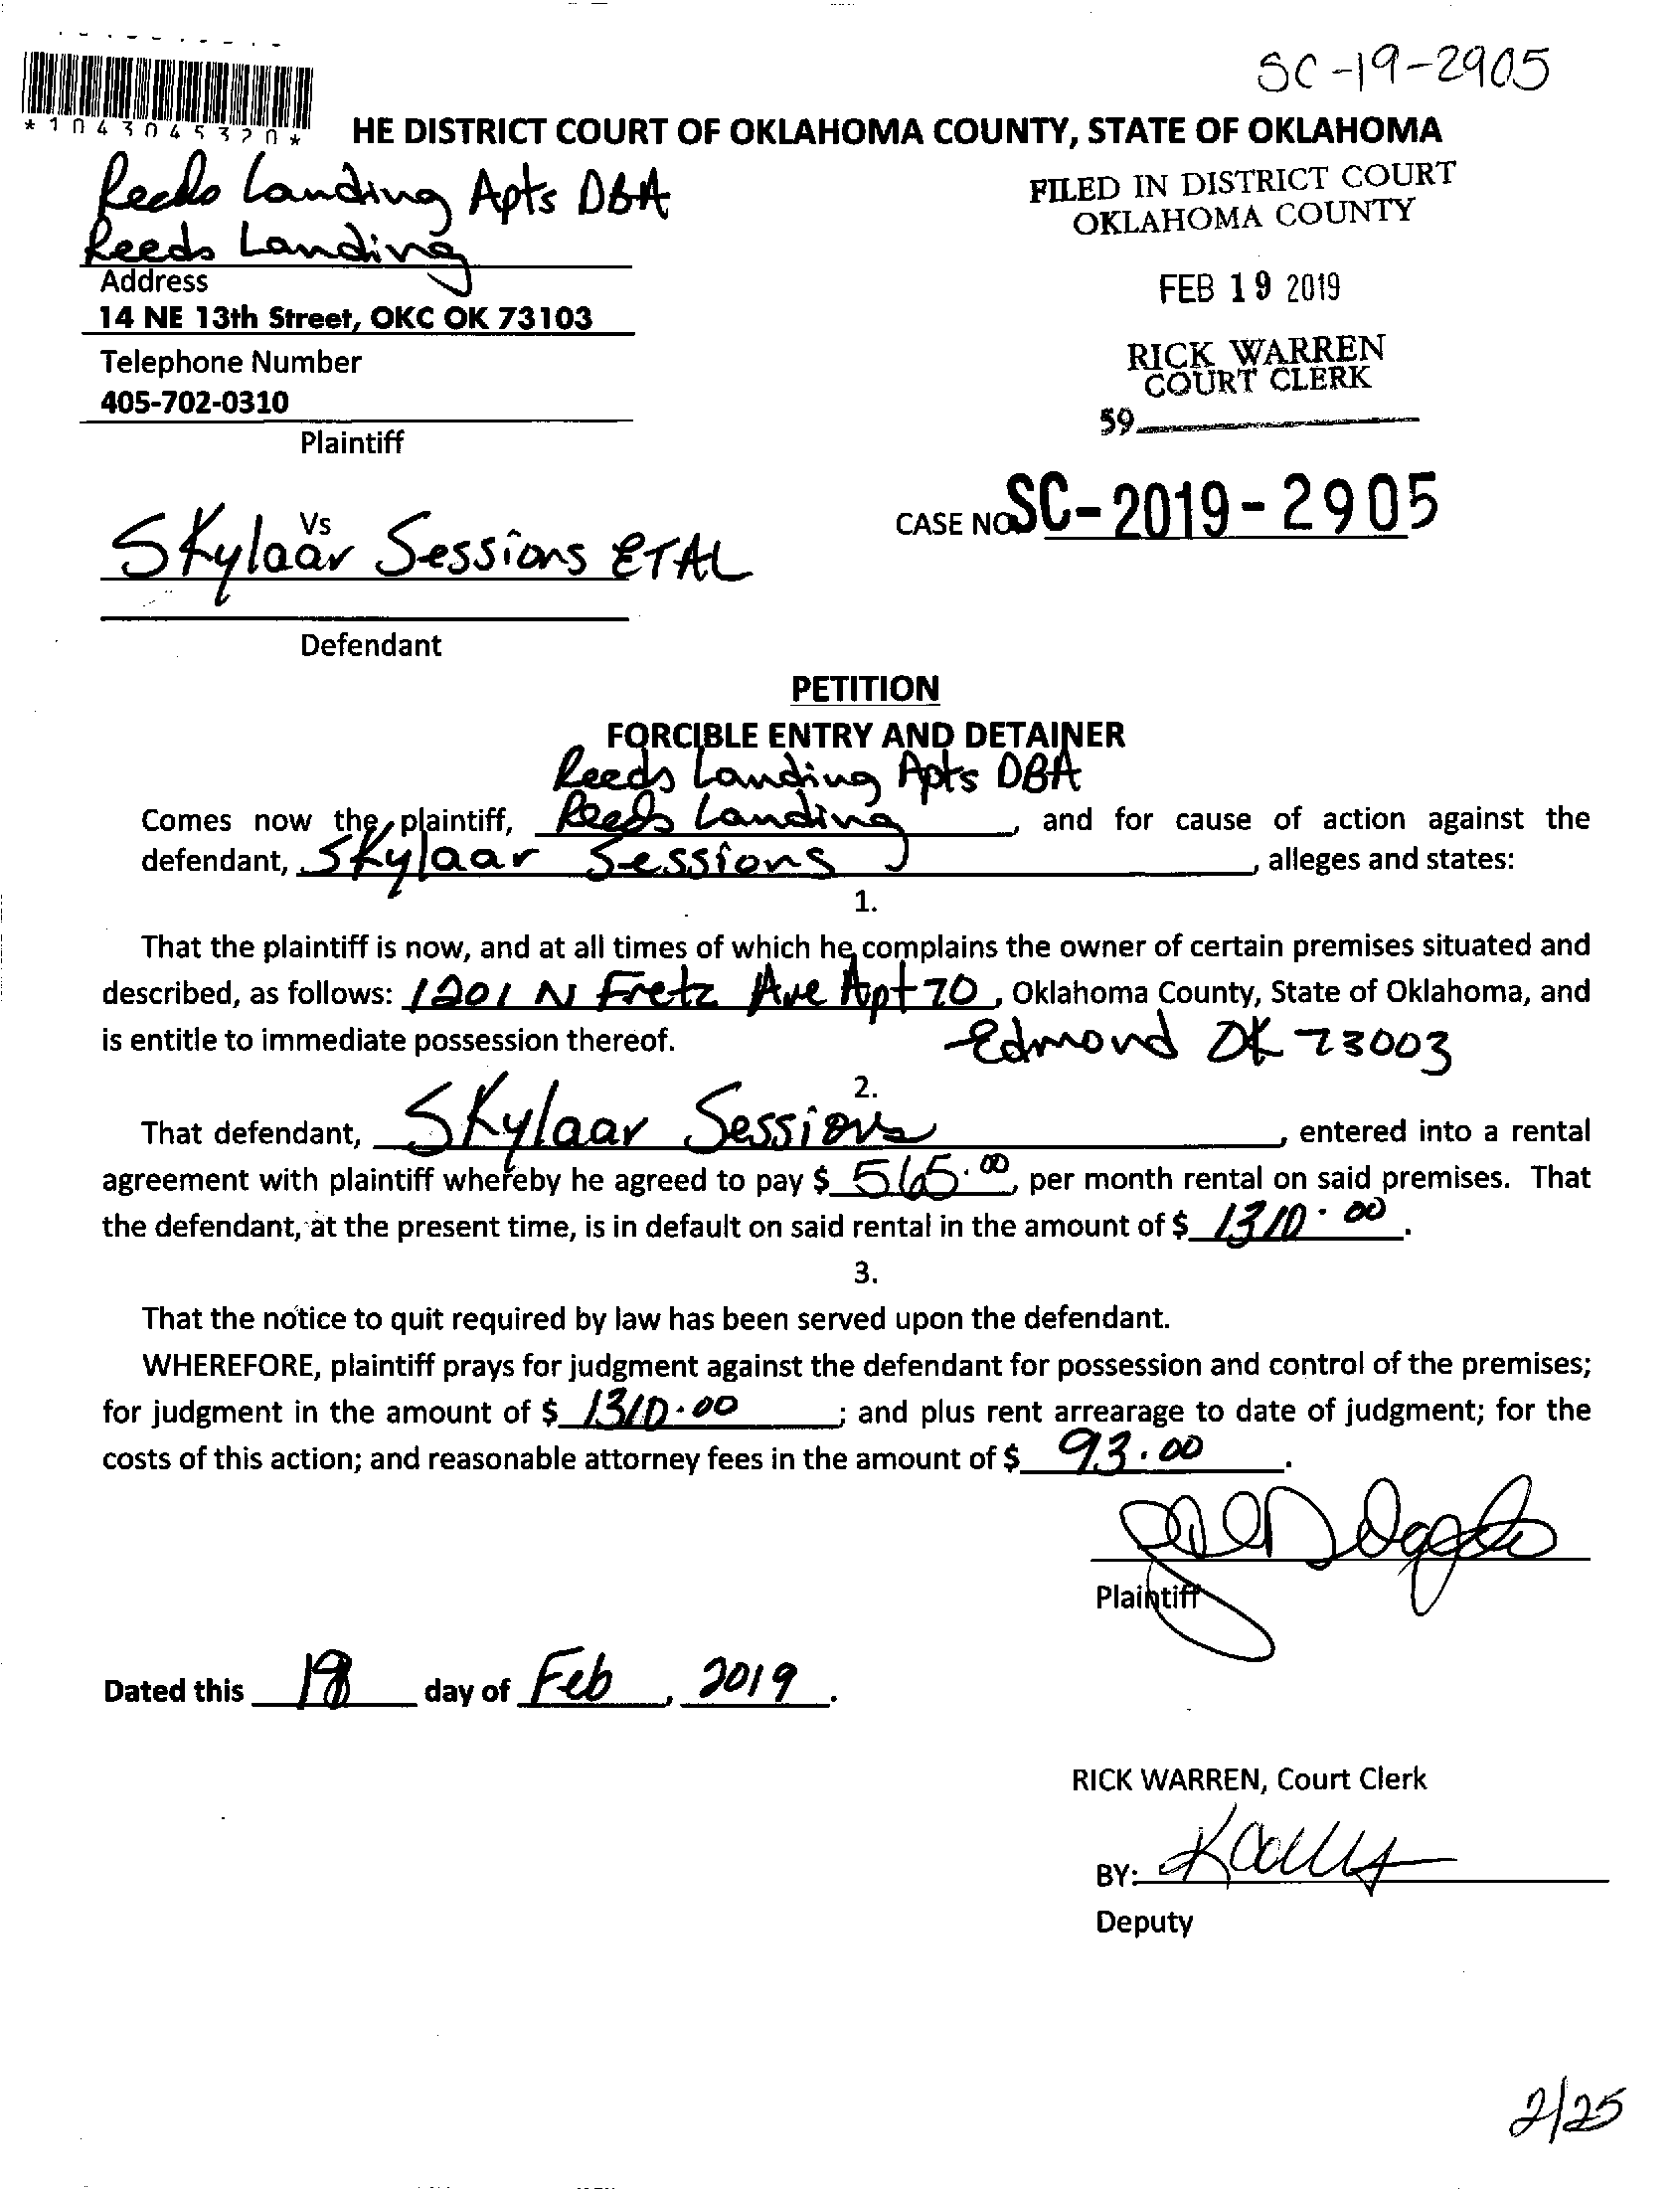 SC-19-2905
*1043045320*
HE DISTRICT COURT OF OKLAHOMA COUNTY, STATE OF OKLAHOMA
Reeds Landing Apts DBA
Reeds Landing
Address
14 NE 13th Street, OKC OK 73103
Telephone Number
405-702-0310
Plaintiff
FILED IN DISTRICT COURT
OKLAHOMA COUNTY
FEB 19 2019
RICK WARREN
COURT CLERK
59
Vs
Skylaar Sessions ETAL
Defendant
CASE NO SC-2019-2905
PETITION
FORCIBLE ENTRY AND DETAINER
Reeds Landing Apts DBA
Comes now the plaintiff, Reeds Landing, and for cause of action against the
defendant, Skylaar Sessions, alleges and states:
1.
That the plaintiff is now, and at all times of which he complains the owner of certain premises situated and
described, as follows: 1201 N Fretz Ave Apt 70, Oklahoma County, State of Oklahoma, and
is entitle to immediate possession thereof. Edmond OK 73003
2.
That defendant, Skylaar Sessions, entered into a rental
agreement with plaintiff whereby he agreed to pay $ 565.00, per month rental on said premises. That
the defendant, at the present time, is in default on said rental in the amount of $ 1310.00.
3.
That the notice to quit required by law has been served upon the defendant.
WHEREFORE, plaintiff prays for judgment against the defendant for possession and control of the premises;
for judgment in the amount of $ 1310.00; and plus rent arrearage to date of judgment; for the
costs of this action; and reasonable attorney fees in the amount of $ 93.00.
Plaintiff
Dated this day of Feb, 2019.
RICK WARREN, Court Clerk
BY:
Deputy
2/25